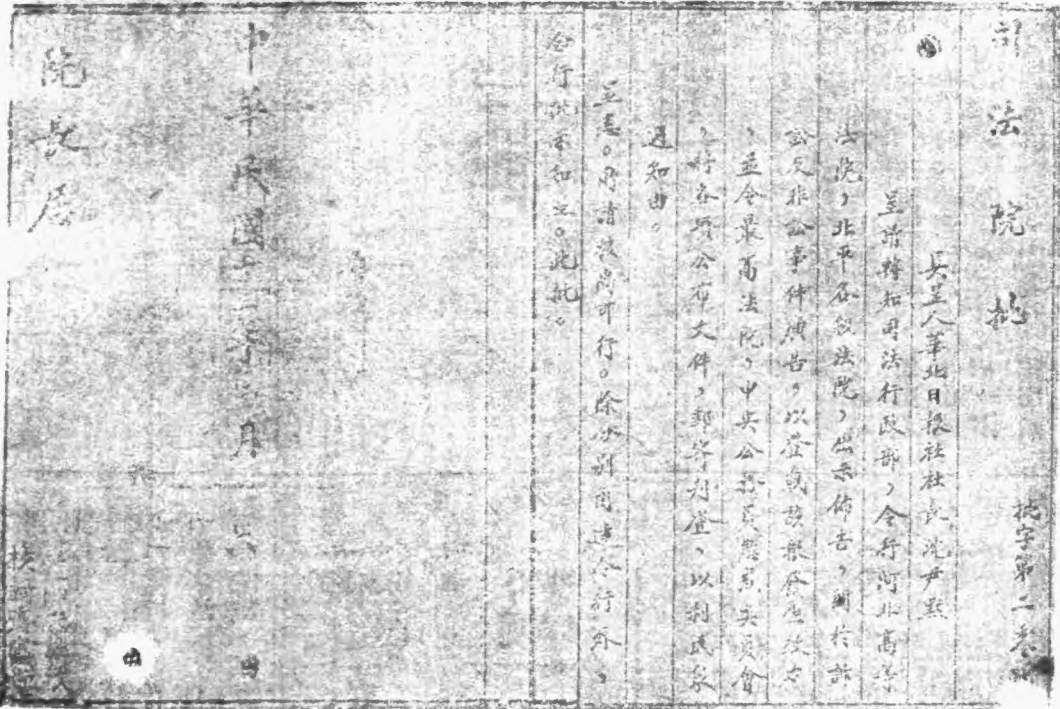 司法院批
批字第二
具呈人華北日報社社長沈尹默
呈請轉知司法行政部,令行河北高等
法院,北平各級法院,出示佈告,關於訴
訟及非訟事件廣告,以登載該報發生效力
、並令最高法院,中央公務員懲戒委員會
、將各項公布文件,郵寄刊登、以利民眾
週知由。
呈悉。所請教尚可行。除分別函達令行外、
合行批示知之。此批。
中華民國二十二年 月 六 日
院長居
校